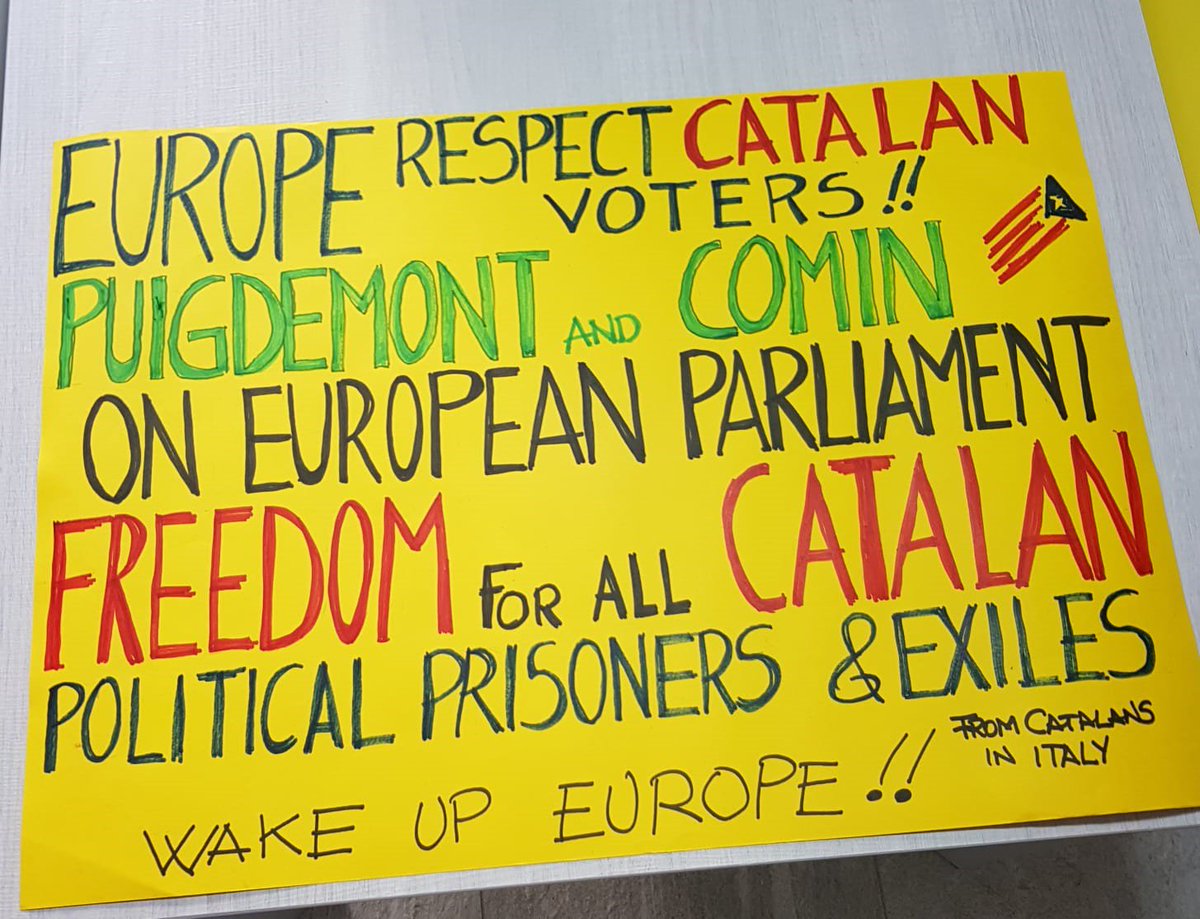 EUROPE RESPECT CATALAN
VOTERS!!
PUIGDEMONT AND COMIN
ON EUROPEAN PARLIAMENT
FREEDOM FOR ALL CATALAN
POLITICAL PRISONERS & EXILES
FROM CATALANS
IN ITALY
WAKE UP EUROPE!!